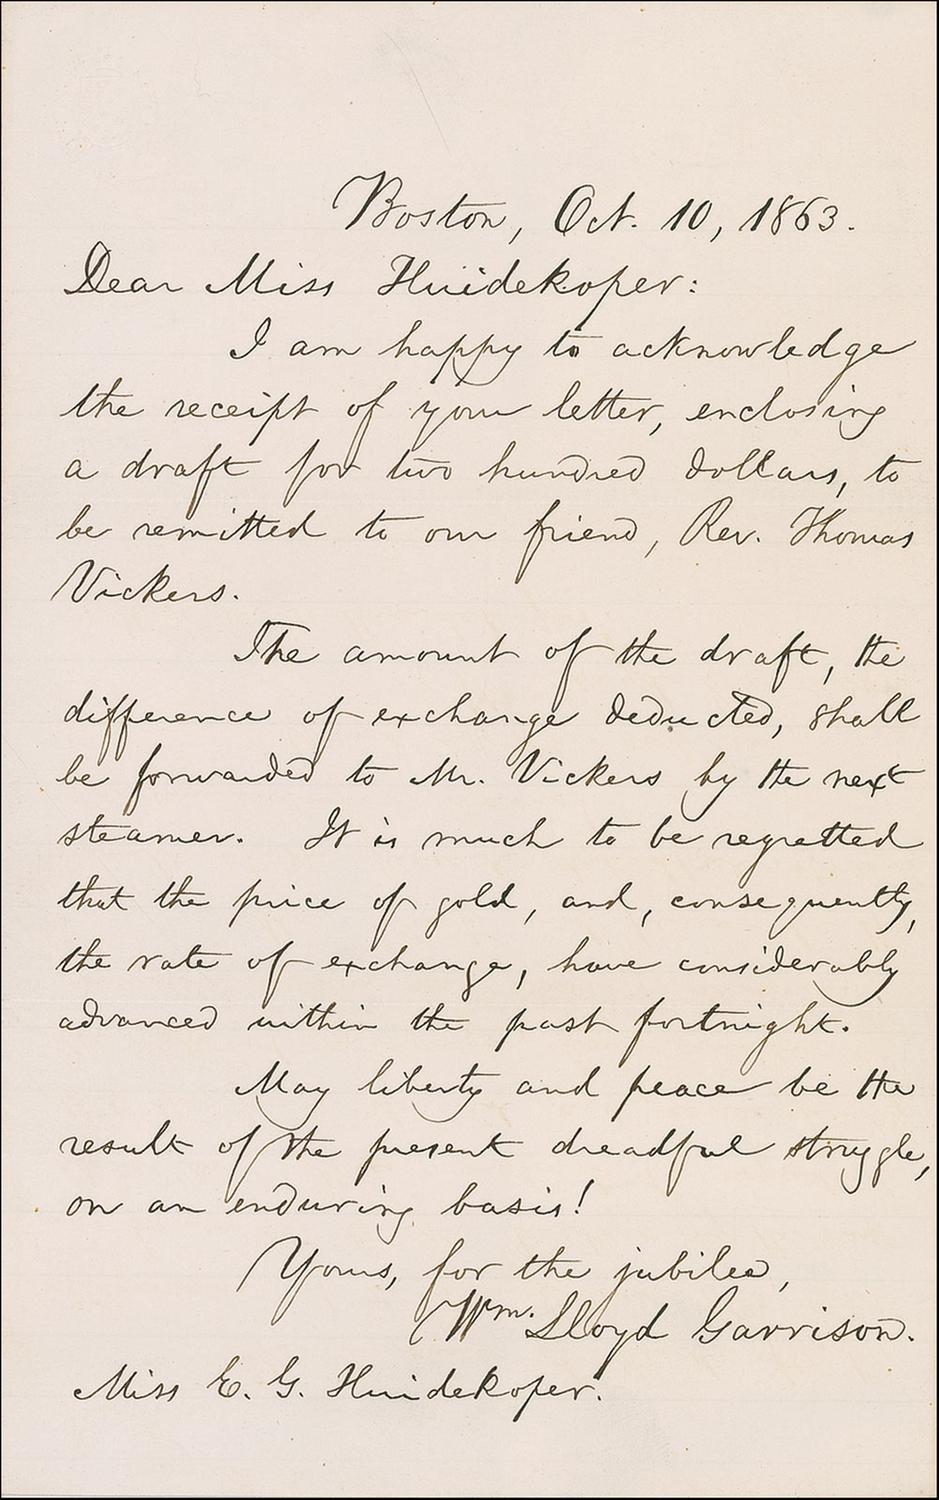 Boston, Oct. 10, 1863.
Dear Miss Huidekoper:
I am happy to acknowledge
the receipt of your letter, enclosing
a draft for two hundred dollars, to
be remitted to our friend, Rev. Thomas
Vickers.
The amount of the draft, the
difference of exchange deducted, shall
be forwarded to Mr. Vickers by the next
steamer. It is much to be regretted
that the price of gold, and, consequently,
the rate of exchange, have considerably
advanced within the past fortnight.
May liberty and peace be the
result of the present dreadful struggle,
on an enduring basis!
Yours, for the jubilee,
Wm. Lloyd Garrison.
Miss E. G. Huidekoper.